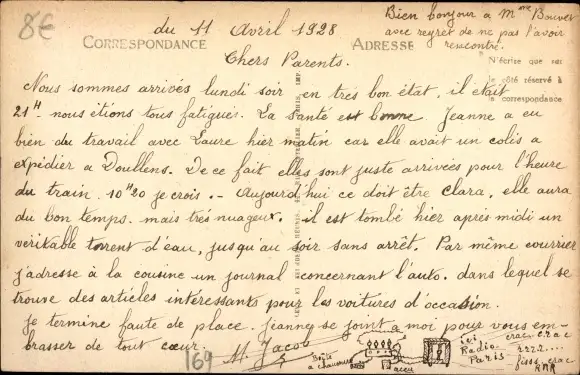 8€
du 11 Avril 1928
Bien bonjour a Mme Bouvet
avec regret de ne pas l'avoir
rencontré.
CORRESPONDANCE
ADRESSE
N'écrire que sur
le côté réservé à
la correspondance
Chers Parents.
Nous sommes arrivés lundi soir en très bon état, il était
21H nous étions tous fatigués. La santé est bonne Jeanne a eu
bien du travail avec Laure hier matin car elle avait un colis a
expédier a Doullens. De ce fait elles sont juste arrivées pour l'heure
du train. 10H20 je crois.- Aujourd'hui ce doit être Clara, elle aura
du bon temps. mais très nuageux. il est tombé hier après midi un
veritable torrent d'eau, jusqu'au soir sans arrêt. Par même courrier
j'adresse à la cousine un journal concernant l'auto. dans lequel se
trouve des articles intéressants pour les voitures d'occasion.
je termine faute de place. jeanne se joint a moi pour vous em-
brasser de tout cœur.
164
M. Jacou
Boîte
a chaussures
accu
ici
Radio
Paris
crac. crac
zzzz....
fisss. crac
RRR